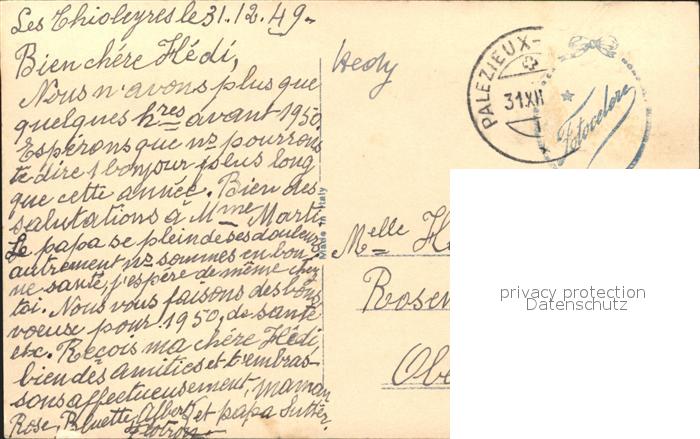 Les Thioleyres le 31.12.49.
Bien chére Hédi,
Nous n'avons plus que
quelques hres avant 1950.
Espérons que ns pourrons
te dire 1 bonjour plus long
que cette année. Bien des
salutations à Mme Marti.
Le papa se plein de ses douleurs
autrement ns sommes en bon-
ne santé, j'espére de même chez
toi. Nous vous faisons des bons
voeuse pour 1950, de santé
etc. Reçois ma chére Hédi,
bien des amities et t'embras-
sons affectueusement, maman
Rose, Bluette, Albert et papa Sutter.
Hedy
PALEZIEUX-
31 XII
Fotocelere
Made in Italy
Melle H
Rosen
Obe
privacy protection
Datenschutz